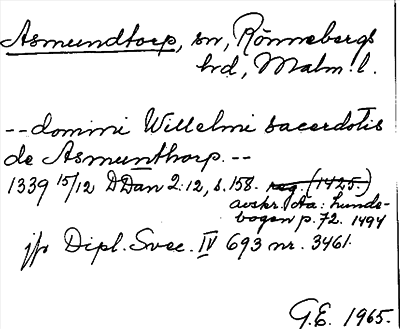 Asmundtorp, sn, Rönnebergs
hd, Malm. l.
-- domini Willelmi sacerdotis
de Asmunthorp. --
1339 15/12 DDan 2:12, s. 158. reg. (1425.)
avskr. i da: Lunds-
bogen p. 72. 1494
jfr Dipl. Svec. IV 693 nr. 3461.
G.E. 1965.